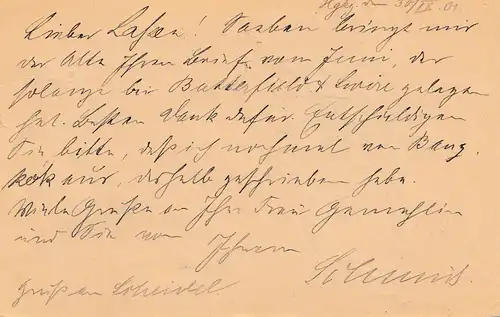 Hgkg. den 30/IX. 01
Lieber Lahsen! Soeben bringt mir
der Alte Ihren Brief vom Juni, der
solange bei Butterfield & Swire gelegen
hat. Besten Dank dafür. Entschuldigen
Sie bitte, daß ich nochmal von Bang-
kok aus, deshalb geschrieben habe.
Viele Grüße an Ihre Frau Gemahlin
und Sie von Ihrem
Gruß an Scheidel.